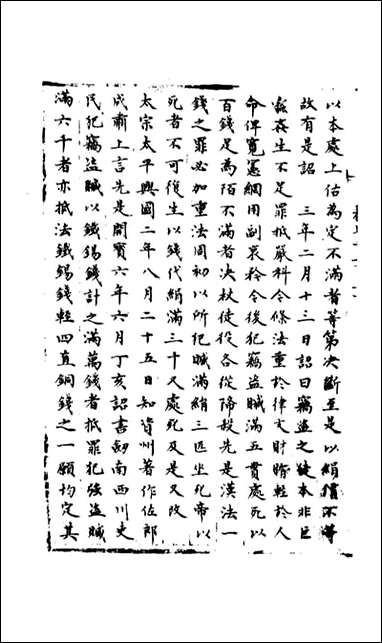 以本處上估為定不滿者等第決斷至是以絹價不等
故有是詔　三年二月十三日詔曰竊盜之徒本非巨
蠹姦生不足罪抵嚴科今條法重於律文財賄輕於人
命俾寬憲綱用副哀矜今後犯竊盜贓滿五貫處死以
百錢足為陌不滿者決杖徒役各從降殺先是漢法一
錢之罪必加重法周初以所犯贓滿絹三匹坐死帝以
死者不可復生以錢代絹滿三千又處死及是又改
太宗太平興國二年八月二十五日知資州著作佐郎
成肅上言先是開寶六年六月丁亥詔書劒南西川吏
民犯竊盜贓以鐵錫錢計之滿萬錢者抵罪犯強盜贓
滿六千者亦抵法鐵錫錢輕四直銅錢之一願均定其